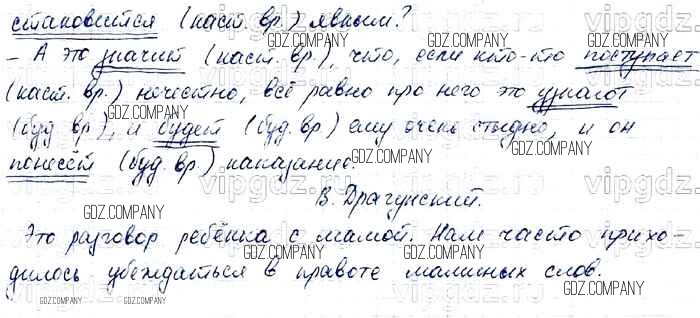 становится (наст. вр.) явным?
- А это значит (наст. вр.), что, если кто-то поступает
(наст. вр.) нечестно, всё равно про него это узнают
(буд. вр.), и будет (буд. вр.) ему очень стыдно, и он
понесёт (буд. вр.) наказание.
В. Драгунский.
Это разговор ребёнка с мамой. Нам часто прихо-
дилось убеждаться в правоте маминых слов.
GDZ.COMPANY
vipgdz.ru